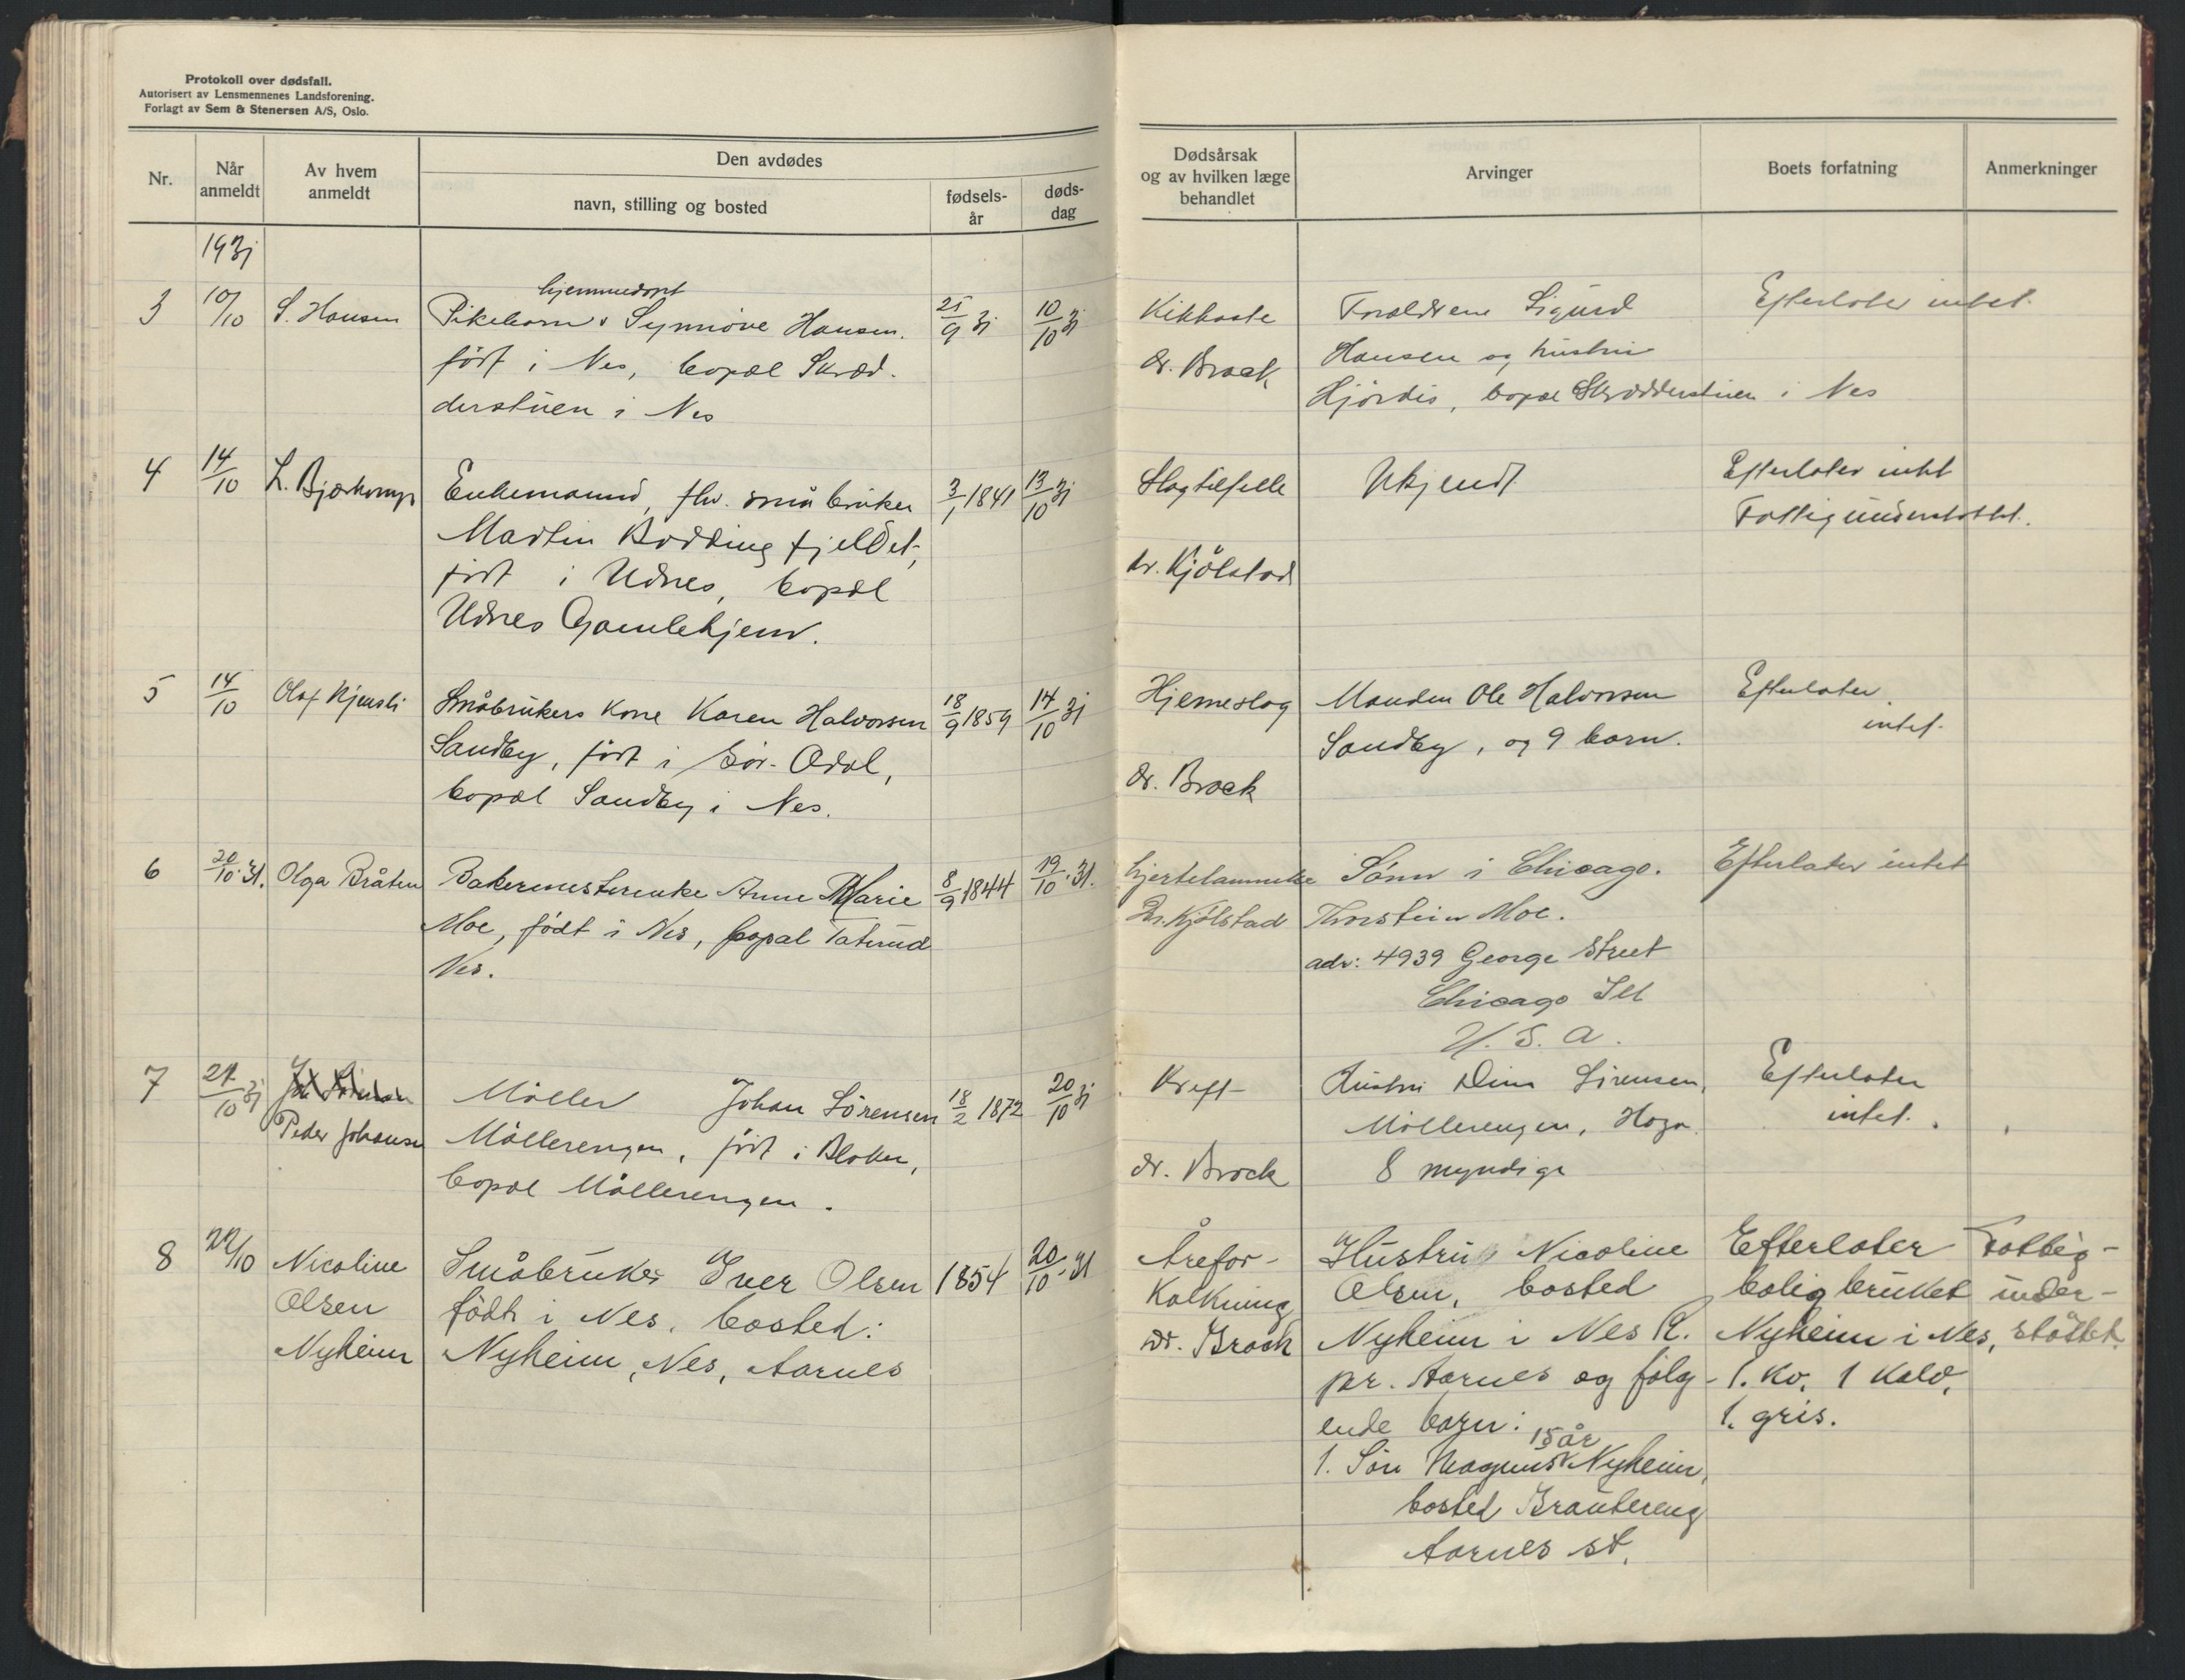 Protokoll over dødsfall.
Autorisert av Lensmennenes Landsforening.
Forlagt av Sem & Stenersen A/S, Oslo.
Nr.
Når anmeldt
Av hvem anmeldt
Den avdødes
navn, stilling og bosted
fødsels-år
døds-dag
Dødsårsak og av hvilken læge behandlet
Arvinger
Boets forfatning
Anmerkninger
1931
3
10/10
S. Hansen
hjemmedøpt
Pikebarn Synnöve Hansen.
född i Nes, bopæl Skræd-
derstuen i Nes
25/9 31
10/10 31
Kikhoste
dr. Brock
Forældrene Sigurd
Hansen og hustru
Hjördis, bopæl Skrædderstuen i Nes
Efterlater intet.
4
14/10
Enkemand, fhv. småbruker
Martin Bodding fjeldet,
født i Udnes, bopæl
Udnes Gamlehjem.
3/1 1841
13/10 31
Slagtilfelle
dr. Kjölstad
Ukjendt
Efterlater intet
Fattigunderstøttet.
5
14/10
Olaf
Småbrukers kone Karen Halvorsen
Sandby, født i Sör-Odal,
bopæl Sandby i Nes.
18/9 1859
14/10 31
Hjerneslag
dr. Brock
Manden Ole Halvorsen
Sandby, og 9 barn.
Efterlater
intet.
6
20/10.31.
Olga Bråten
Bakermesterenke Anne Marie
Moe, født i Nes, bopæl Taterud
Nes.
8/9 1844
19/10.31.
hjertelammelse
Dr. Kjölstad
Sönn i Chicago.
Thorstein Moe.
adr: 4939 George Street
Chicago Ill
U. S. A.
Efterlater intet
7
21/10 31
Peder Johansen
Möller Johan Sörensen
Möllerengen, født i Blaker,
bopæl Möllerengen.
18/2 1872
20/10 31
Kreft
dr. Brock
Hustru Dina Sörensen,
Möllerengen, Haga.
8 myndige
Efterlater
intet.
8
22/10
Nicoline
Olsen
Nyheim
Småbruker Iver Olsen
födt i Nes, bosted:
Nyheim, Nes, Aarnes
1854
20/10.31
Årefor-
kalkning
dr. Brock
Hustru Nicoline
Olsen, bosted
Nyheim i Nes R.
pr. Aarnes og fölg-
ende barn:
15 år
1. Sön Magnus Nyheim,
bosted Brautereng
Aarnes st.
Efterlater
boligbruket
Nyheim i Nes,
1. ku, 1 kalv,
1. gris.
Fattig-
under-
stöttet.